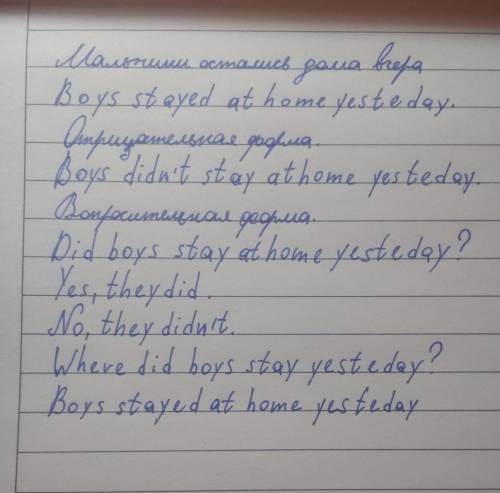 Мальчики остались дома вчера
Boys stayed at home yesteday.
Отрицательная форма.
Boys didn't stay at home yesteday.
Вопросительная форма.
Did boys stay at home yesteday?
Yes, they did.
No, they didn't.
Where did boys stay yesteday?
Boys stayed at home yesteday